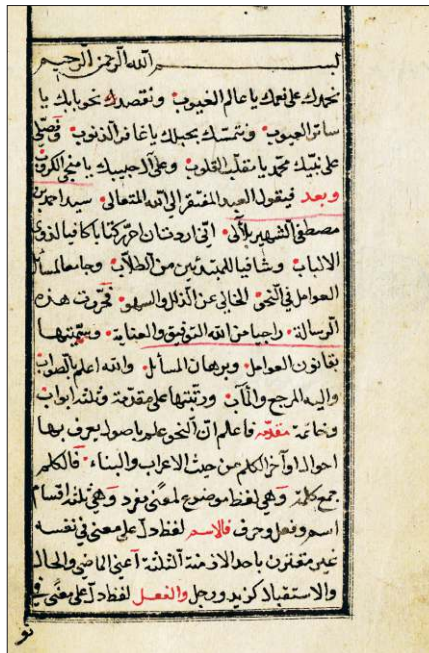 بسم الله الرحمن الرحيم
نحمدك على نعمك يا عالم الغيوب ونقصدك نحو بابك يا
ساتر العيوب ونتمسك بحبلك يا غافر الذنوب ونصلى
على نبيك محمد يا مقلب القلوب وعلى آل حبيبك يا منجى الكروب
وبعد فيقول العبد المفتقر الى الله المتعالى سيد احمد بن
مصطفى الشهير بلآلى انى اردت ان احرر كتابا كافيا لذوى
الالباب وشافيا للمبتدئين من الطلاب وجامعا لمسائل
العوامل فى النحو الخالى عن الذلل والسهو فحررت هذه
الرسالة راجيا من الله التوفيق والعناية وسميتها
بقانون العوامل وبرهان المسائل والله اعلم بالصواب
واليه المرجع والمآب ورتبتها على مقدمة وثلثة ابواب
وخاتمة مقدمة فاعلم ان النحو علم باصول يعرف بها
احوال اواخر الكلم من حيث الاعراب والبناء فالكلم
جمع كلمة وهى لفظ موضوع لمعنى مفرد وهى ثلثة اقسام
اسم وفعل وحرف فالاسم لفظ دل على معنى فى نفسه
غير مقترن باحد الازمنة الثلثة اعنى الماضى والحال
والاستقبال كزيد ورجل والفعل لفظ دل على معنى فى